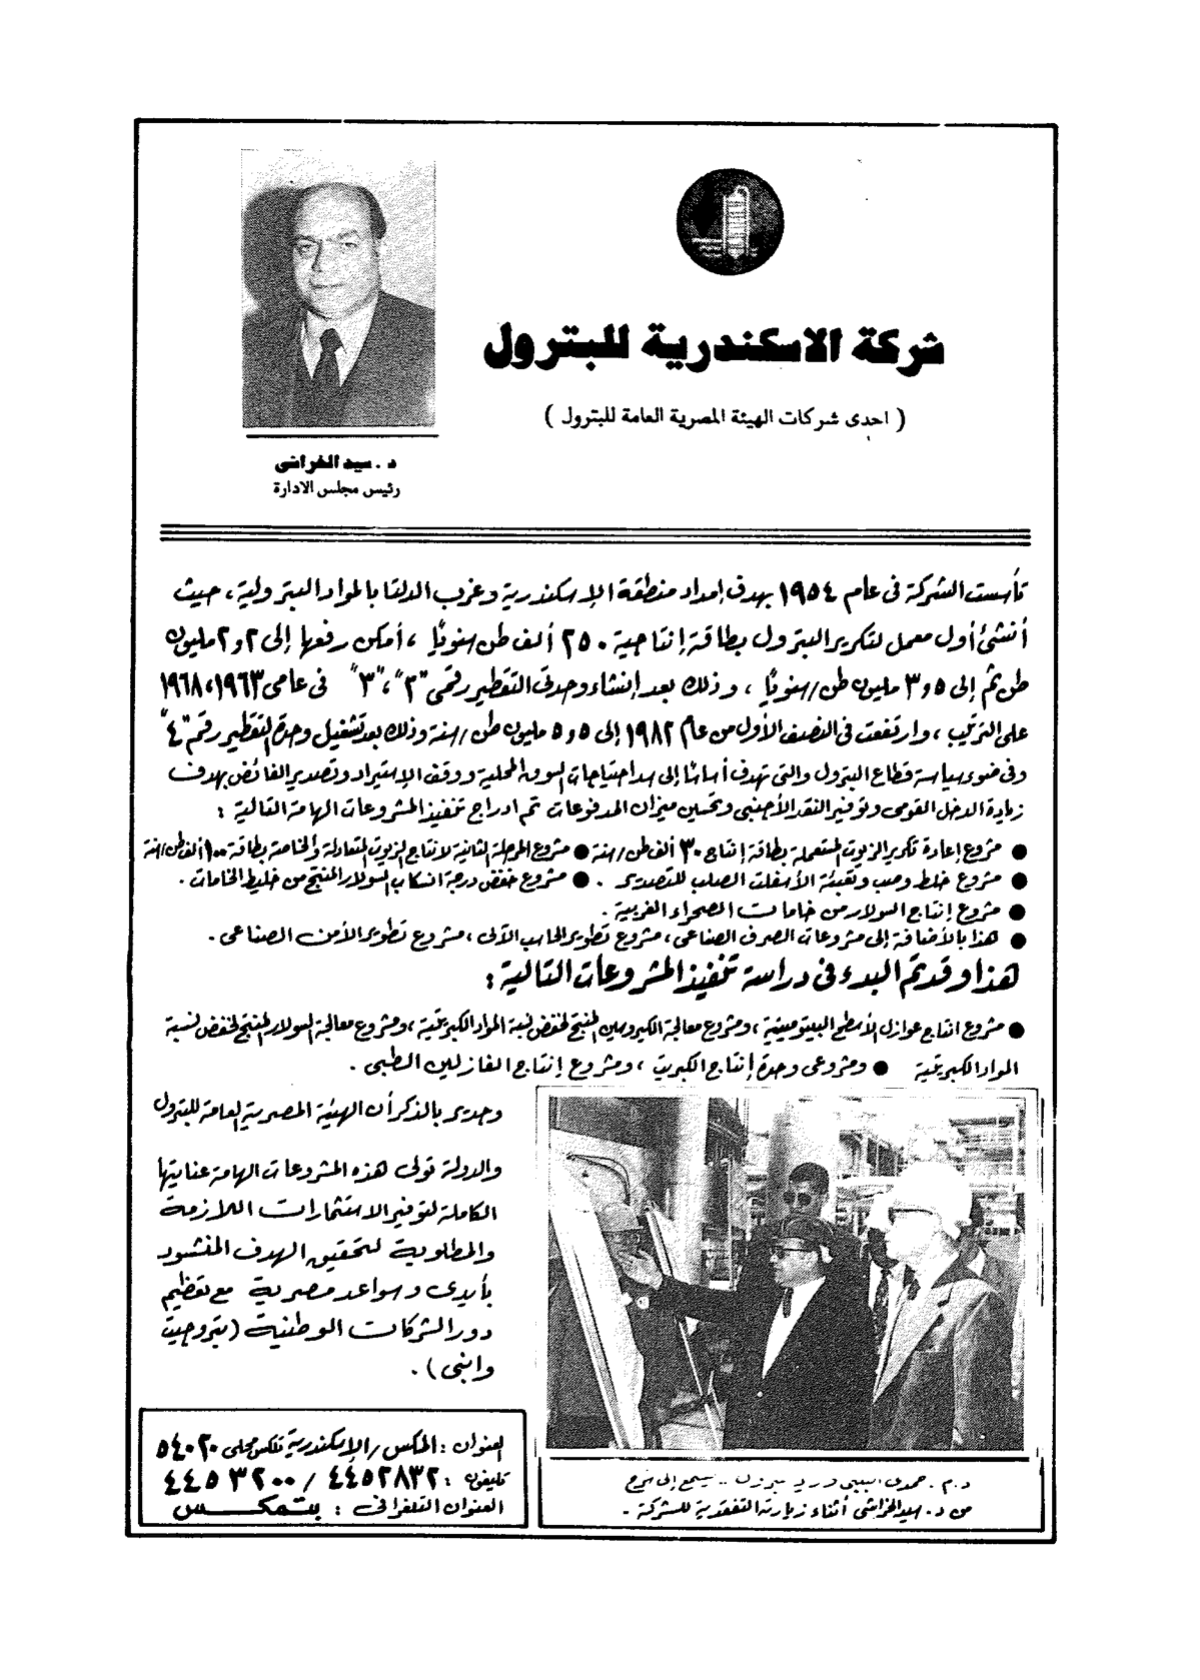 شركة الاسكندرية للبترول
( احدى شركات الهيئة المصرية العامة للبترول )
د . سيد الخراشى
رئيس مجلس الادارة
تأسست الشركة فى عام ١٩٥٤ بهدف إمداد منطقة الإسكندرية وغرب الدلتا بالمواد البترولية ، حيث
أنشئ أول معمل لتكرير البترول بطاقة إنتاجية ٢٥٠ ألف طن سنوياً ، أمكن رفعها إلى ٢ر٢ مليون
طن ثم إلى ٣ر٥ مليون طن/سنوياً ، وذلك بعد إنشاء وحدتى التقطير رقمى "٢" ، "٣" فى عامى ١٩٦٣ ، ١٩٦٨
على الترتيب ، وارتفعت فى النصف الأول من عام ١٩٨٢ إلى ٥ر٥ مليون طن/سنة وذلك بعد تشغيل وحدة التقطير رقم "٤"
وفى ضوء سياسة قطاع البترول والتى تهدف أساسًا إلى سد احتياجات السوق المحلية ووقف الإستيراد وتصدير الفائض بهدف
زيادة الدخل القومى وتوفير النقد الأجنبى وتحسين ميزان المدفوعات تم ادراج تنفيذ المشروعات الهامة التالية :
● مشروع إعادة تكرير الزيوت المستعملة بطاقة إنتاج ٣٠ ألف طن/سنة ● مشروع المرحلة الثانية لانتاج الزيوت المتعادلة والخاصة بطاقة ١٠٠ ألف طن/سنة
● مشروع خلط وصب وتعبئة الأسفلت الصلب للتصدير . ● مشروع خفض درجة انسكاب السولار المنتج من خليط الخامات .
● مشروع إنتاج السولار من خامات الصحراء الغربية .
● هذا بالأضافة إلى مشروعات الصرف الصناعى ، مشروع تطوير الحاسب الآلى ، مشروع تطوير الأمن الصناعى .
هذا وقد تم البدء فى دراسة تنفيذ المشروعات التالية :
● مشروع انتاج عوازل الأسطح البيتومينية ، ومشروع معالجة الكيروسين المنتج لخفض نسبة المواد الكبريتية ، ومشروع معالجة السولار المنتج لخفض نسبة
المواد الكبريتية ● ومشروعى وحدة إنتاج الكبريت ، ومشروع إنتاج الفازلين الطبى .
وجدير بالذكر أن الهيئة المصرية العامة للبترول
والدولة تولى هذه المشروعات الهامة عنايتها
الكاملة لتوفير الاستثمارات اللازمة
والمطلوبة لتحقيق الهدف المنشود
بأيدى وسواعد مصرية مع تعظيم
دور الشركات الوطنية (بتروجيت
وانبى) .
د.م. حمدى البنبى وزير البترول .. يستمع إلى شرح
من د. سيد الخراشى أثناء زيارته التفقدية للشركة .
العنوان : المكس / الإسكندرية تلكس محلى ٥٤٠٢٠
تليفون : ٤٤٥٢٨٣٢ / ٤٤٥٣٢٠٠
العنوان التلغرافى : بتمكس